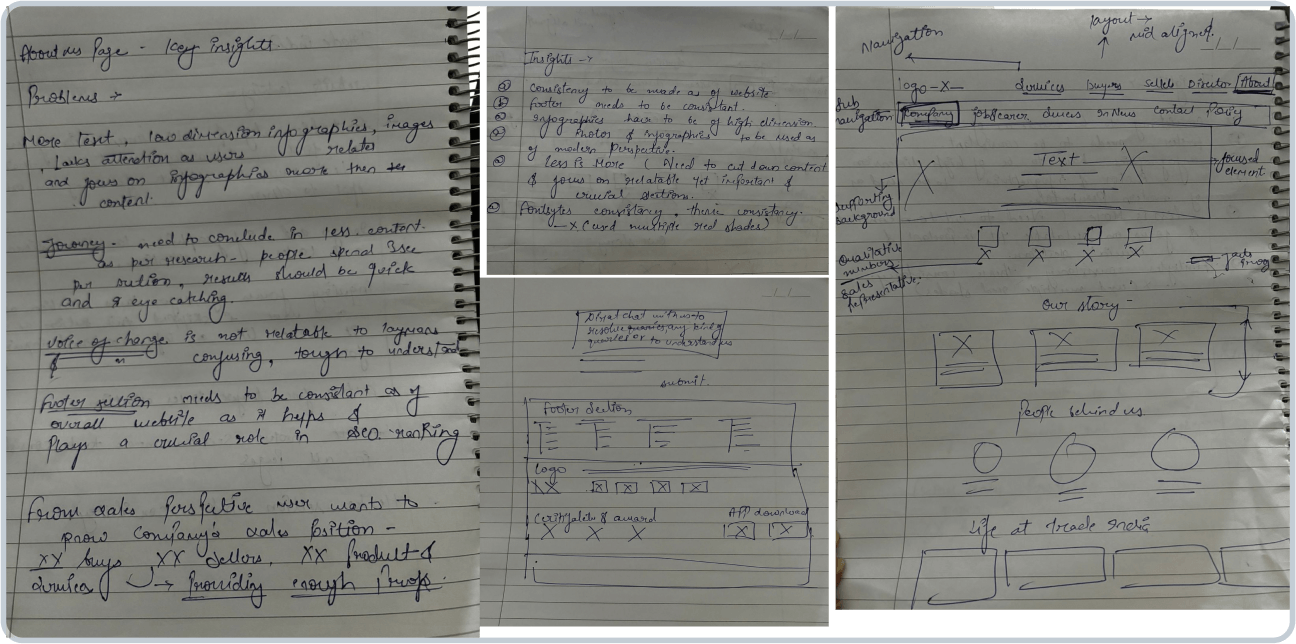 About us Page - Key insights.
Problems →
More Text, low dimension infographics, images
, Lacks attention as users relate
and focus on infographics more then
content.
Journey - need to conclude in less content.
as per research - people spend 3sec
per sution, results should be quick
and eye catching.
Voice of change is not relatable to laymans
confusing, tough to understand
footer section needs to be consistant as of
overall website as it helps &
Plays a crucial role in SEO ranking
From sales Perspective user wants to
know Company's sales Position -
XX buys, XX sellers, XX Product &
services → Providing enough Proofs.
Insights →
Consistency to be made as of website
footer needs to be consistant.
Infographics have to be of high dimension
Photos & infographics to be used as
of modern Perspective.
Less is More ( Need to cut down content
& focus on relatable yet important &
crucial sections.
consistancy, theme consistancy.
- X (used multiple red shades)
chat with us to
resolve queries any
queries or to understand us
submit.
Footer Section
Logo
Certificates & award
App download
layout →
mid aligned.
Navigation
logo -X- Services buyers sellers Director About
Sub
navigation
Company job/career in News Contact Policy
Text
focused
element
Supporting
background
Qualitative
numbers
Sales
representative.
our story -
People behind us
Life at Trade India